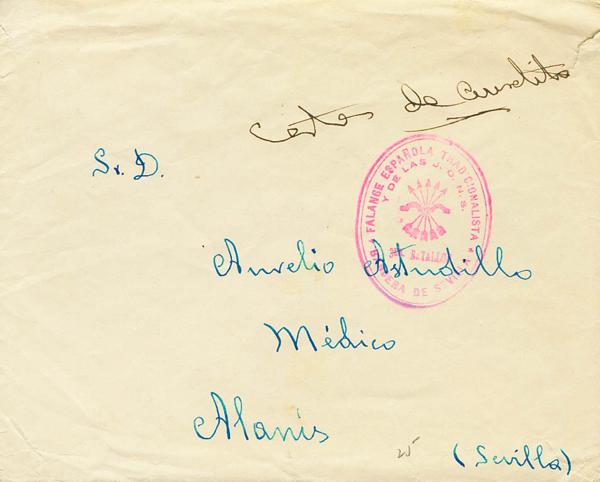 Cartas de Aurelito
Sr. D.
FALANGE ESPAÑOLA TRADICIONALISTA
Y DE LAS J.O.N.S.
BATALLON
DE SEVILLA
Aurelio Astudillo
Médico
Alanis
25
(Sevilla)